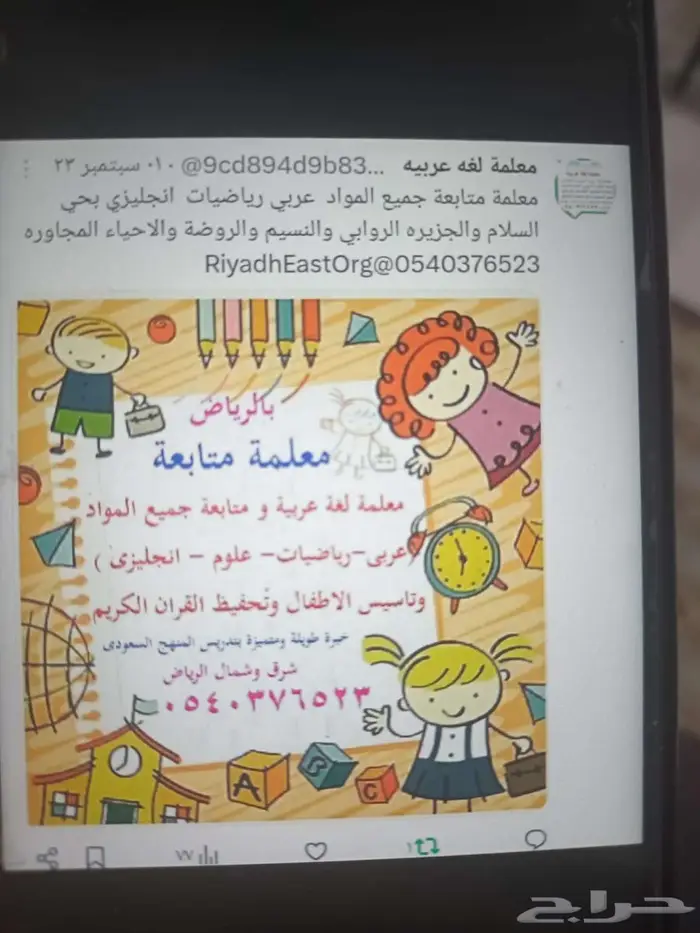 معلمة لغه عربيه @9cd894d9b83... · ١٠ سبتمبر ٢٣
معلمة متابعة جميع المواد عربي رياضيات انجليزي بحي
السلام والجزيره الروابي والنسيم والروضة والاحياء المجاوره
0540376523@RiyadhEastOrg
بالرياض
معلمة متابعة
معلمة لغة عربية و متابعة جميع المواد
(عربى-رياضيات- علوم - انجليزى )
وتاسيس الاطفال وتحفيظ القران الكريم
خبرة طويلة ومتميزة بتدريس المنهج السعودى
شرق وشمال الرياض
٠٥٤٠٣٧٦٥٢٣
A B C
١ ٧٧
حراج